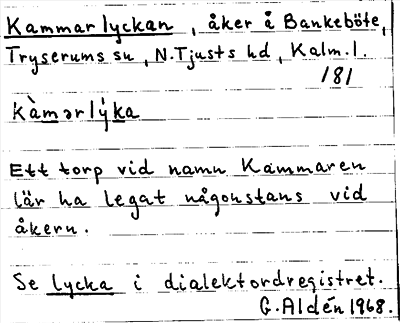 Kammarlyckan, åker å Bankeböte,
Tryserums sn, N.Tjusts hd, Kalm.l.
181
kàmərlýka
Ett torp vid namn Kammaren
lär ha legat någonstans vid
åkern.
Se lycka i dialektordregistret.
G.Aldén 1968.